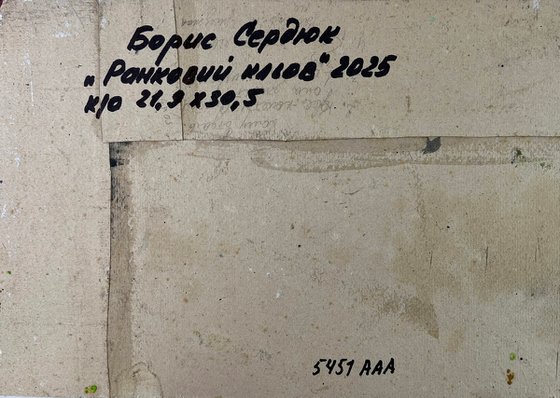 Борис Сердюк
"Ранковий клаов" 2025
к/о 21,9 х 30,5
5451 ААА